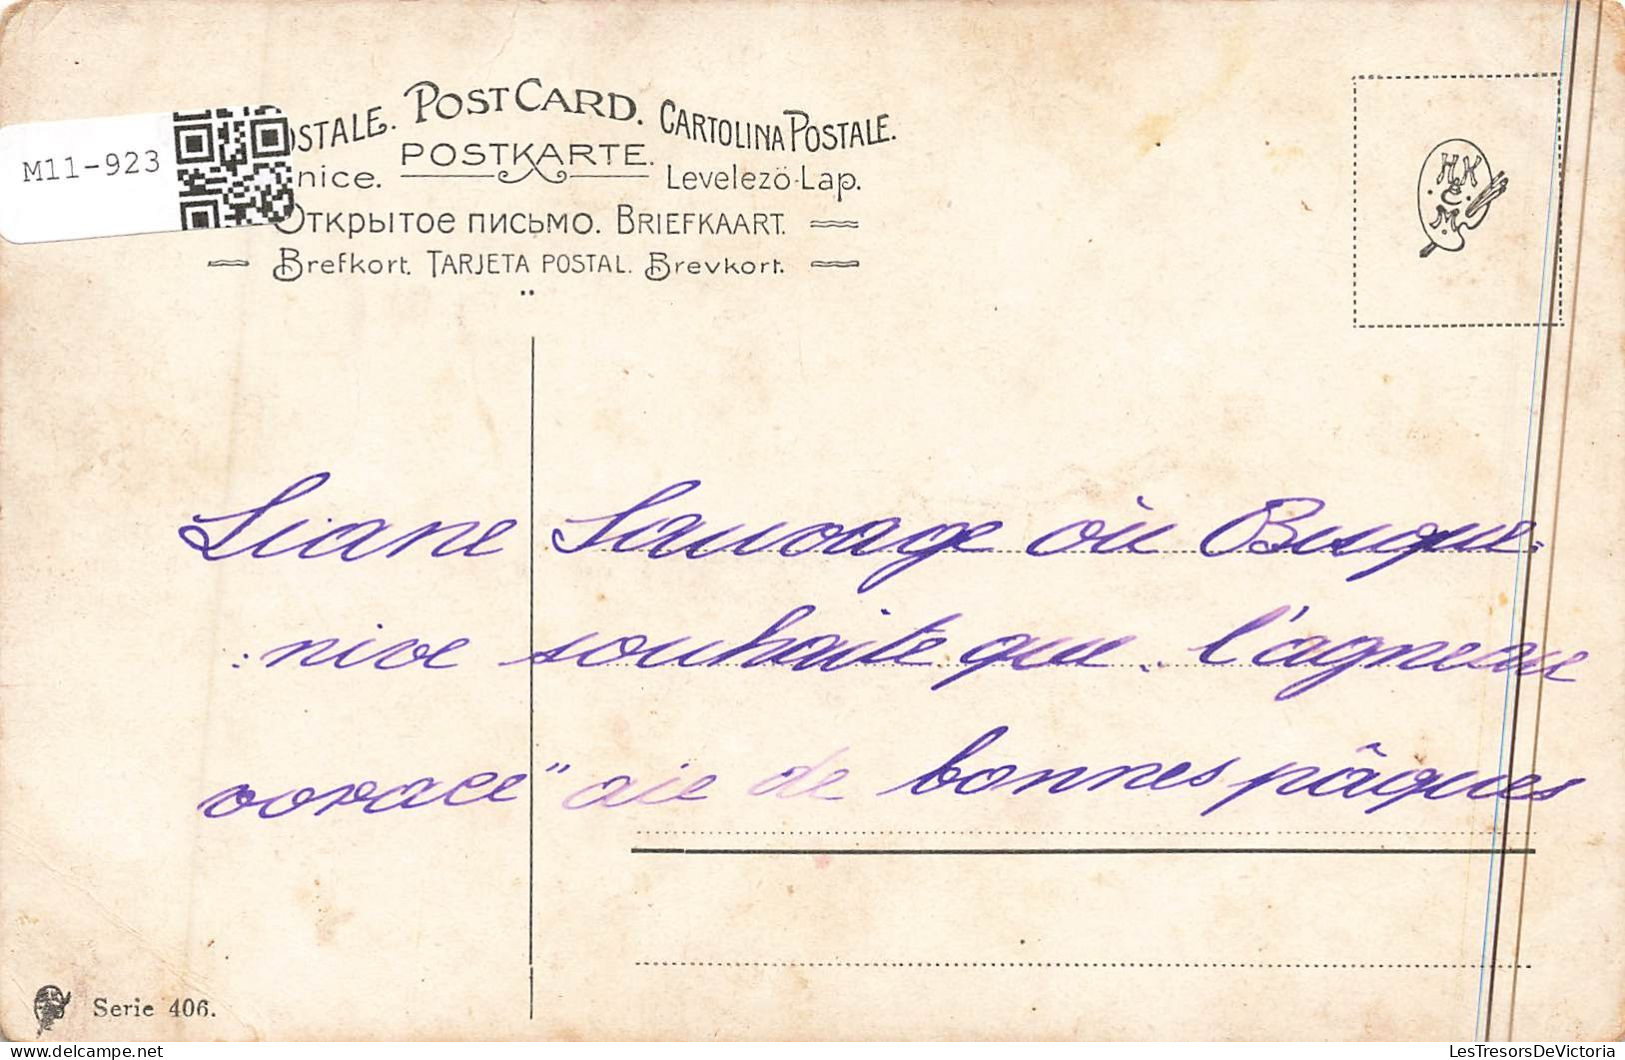 M11-923
OSTALE. POST CARD. CARTOLINA POSTALE.
nice. POSTKARTE. Levelező-Lap.
Открытое письмо. BRIEFKAART.
Brefkort. TARJETA POSTAL. Brevkort.
HK
&
M.
Liane Sauvage où Busque-
:nive souhaite que l'agneau
vorace" aie de bonnes pâques
Serie 406.
LesTresorsDeVictoria